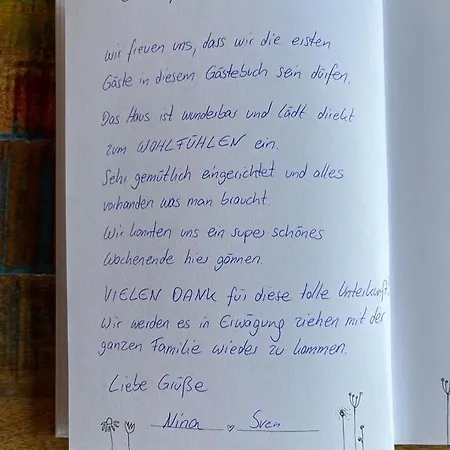 wir freuen uns, dass wir die ersten
Gäste in diesem Gästebuch sein dürfen.
Das Haus ist wunderbar und lädt direkt
zum WOHLFÜHLEN ein.
Sehr gemütlich eingerichtet und alles
vorhanden was man braucht.
Wir konnten uns ein super schönes
Wochenende hier gönnen.
VIELEN DANK für diese tolle Unterkunft.
Wir werden es in Erwägung ziehen mit der
ganzen Familie wieder zu kommen.
Liebe Grüße
Nina ♡ Sven